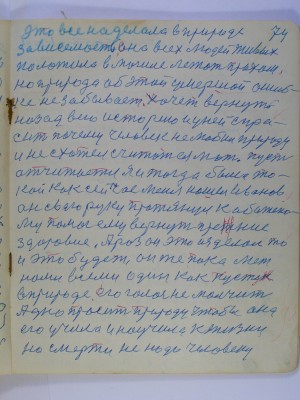 Это все наделала в природе 74
зависимость она всех людей живых
положила в могиле легок прахом,
но природа об этой умершой ошиб-
ке не забывает, хочет вернуть
назад всю историю и у ней спро-
сит почему человек не любил природу
и не схотел считатся мат. пусть
отчитается Я и тогда была та-
кой как сейчас меня нашел Иванов
он свою руку протянул к обижено
му помог ему вернут прежние
здоровие, А раз он это сделал то
и это будет, он же пока меж
нами всеми один как пусток
в природе, его голос не молчит
А одно просит природу чтобы она
его учила и научила к жизни
но смерти не надо человеку